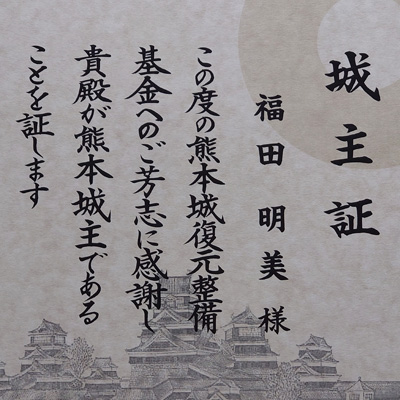 城主証
福田 明美 様
この度の熊本城復元整備
基金へのご芳志に感謝し
貴殿が熊本城主である
ことを証します